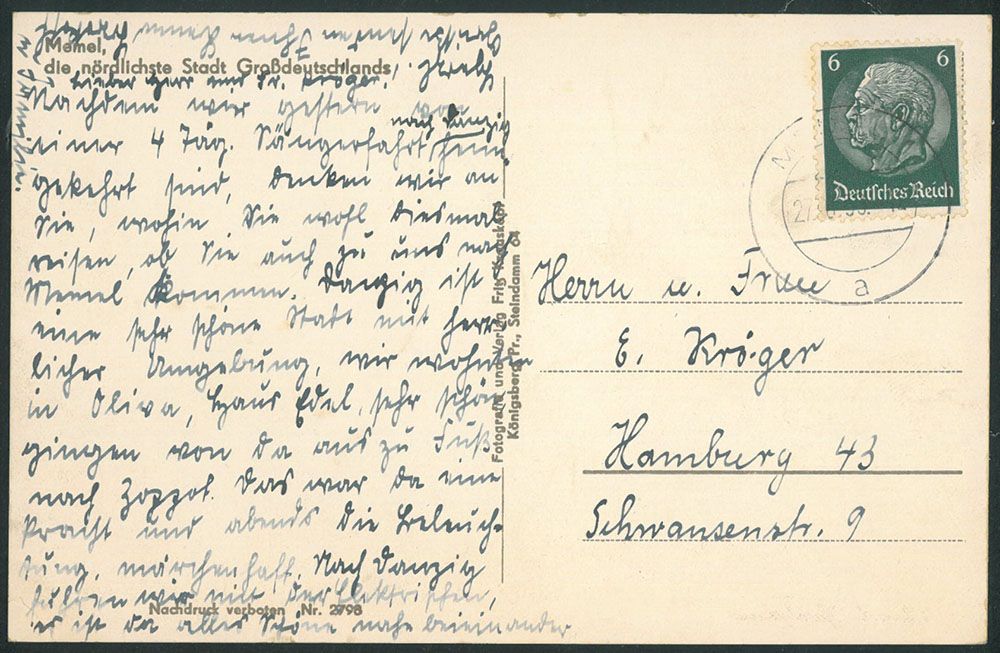 Memel,
die nördlichste Stadt Großdeutschlands
Lieber Herr und Fr. Kröger!
Nachdem wir gestern von
einer 4 Täg. Sängerfahrt nach Danzig heim
gekehrt sind, denken wir an
Sie, wohin Sie wohl diesmal
reisen, ob Sie auch zu uns nach
Memel kommen. Danzig ist
eine sehr schöne Stadt mit herr-
licher Umgebung, wir wohnten
in Oliva, Haus Edel, sehr schön
gingen von da aus zu Fuß
nach Zoppot. Das war da eine
Pracht und abends die Beleuch-
tung, märchenhaft. Nach Danzig
fuhren wir mit der Elektrischen,
es ist da alles Schöne nahe beieinander
Nachdruck verboten Nr. 2798
Fotografie und Verlag Fritz Krauskopf
Königsberg Pr., Steindamm 64
6 6
Deutsches Reich
a
Herrn u. Frau
E. Kröger
Hamburg 43
Schwansenstr. 9